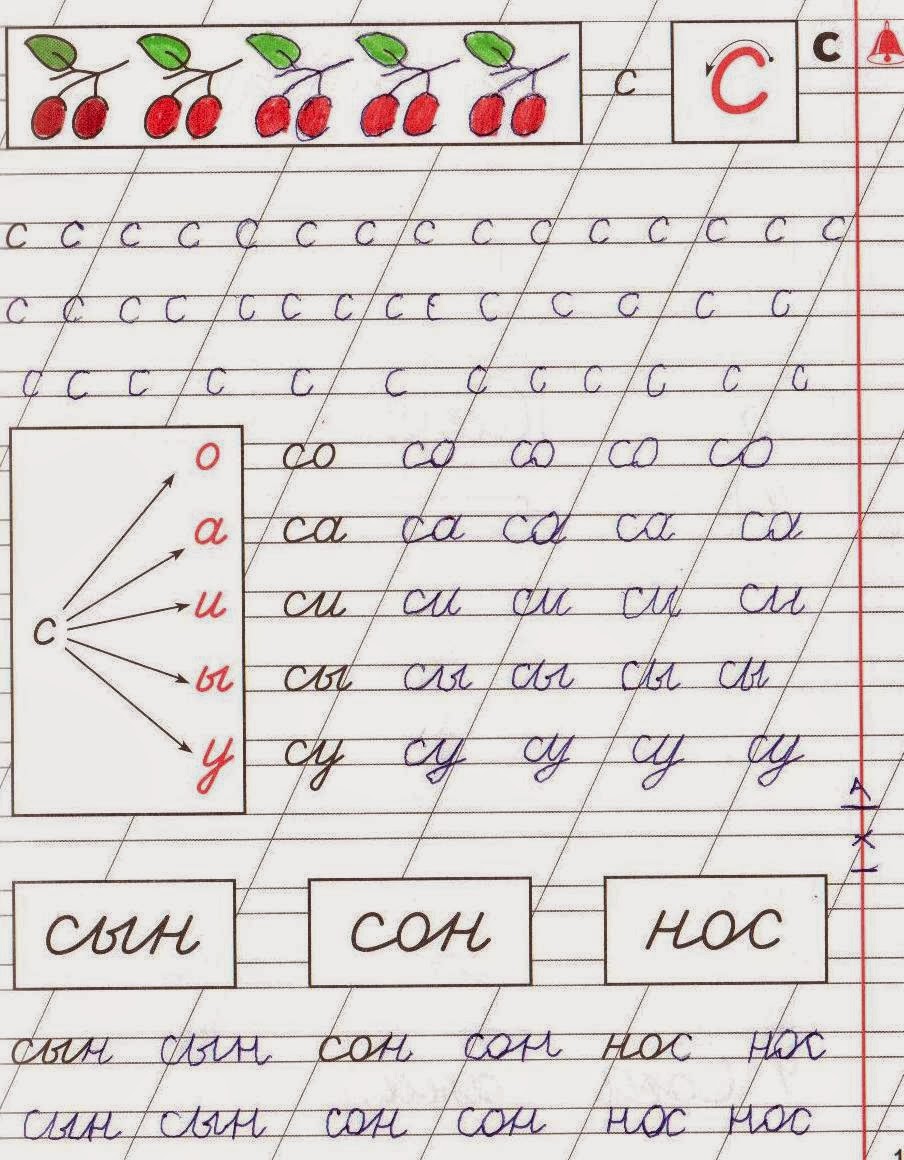 с с с
с с с с с с с с с с с с с с с
с с с с с с с с с с с с с с
с с с с с с с с с с с с
о со со со со со
а са са са са са
и си си си си си
с
ы сы сы сы сы сы
у су су су су су
сын сон нос
сын сын сон сон нос нос
сын сын сон сон нос нос